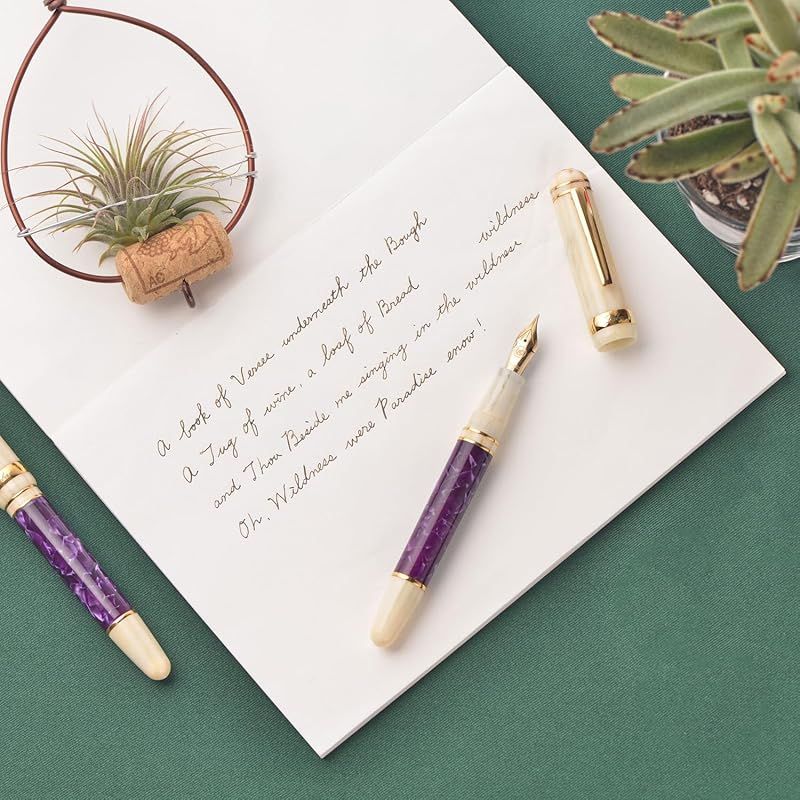 A book of Verses underneath the Bough
A Jug of wine, a loaf of Bread wildness
and Thou Beside me singing in the wildness
Oh, Wildness were Paradise enow!